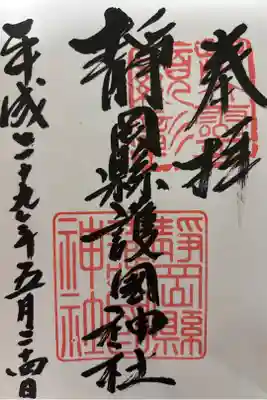 奉拝
靜岡縣護國神社
平成二十九年五月二十四日
靜岡縣護國神社